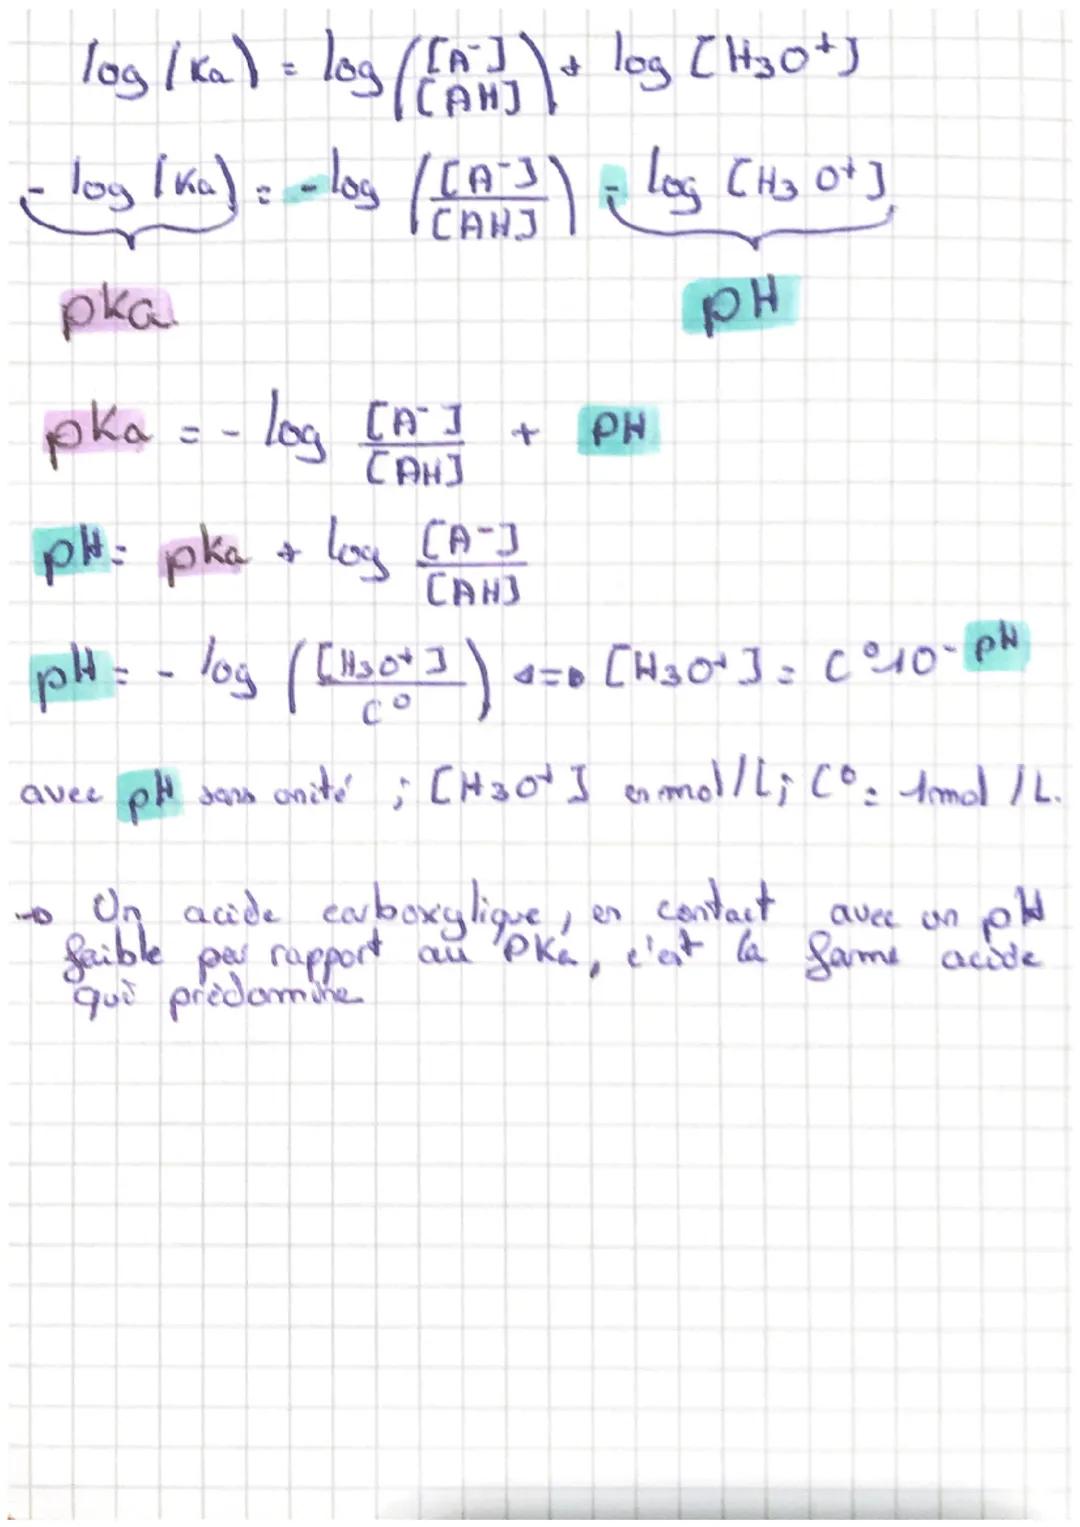 log (Ka) = log ([A⁻]/[AH]) + log [H₃O⁺]
- log (Ka) = - log ([A⁻]/[AH]) - log [H₃O⁺]
pka pH
pKa = - log [A⁻]/[AH] + pH
pH = pka + log [A⁻]/[AH]
pH = - log ([H₃O⁺]/C°) <=> [H₃O⁺] = C°10⁻ᵖᴴ
avec pH sans unité ; [H₃O⁺] en mol/L ; C° = 1mol/L.
→ Un acide carboxylique, en contact avec un pH
faible par rapport au pKa, c'est la forme acide
qui prédomine